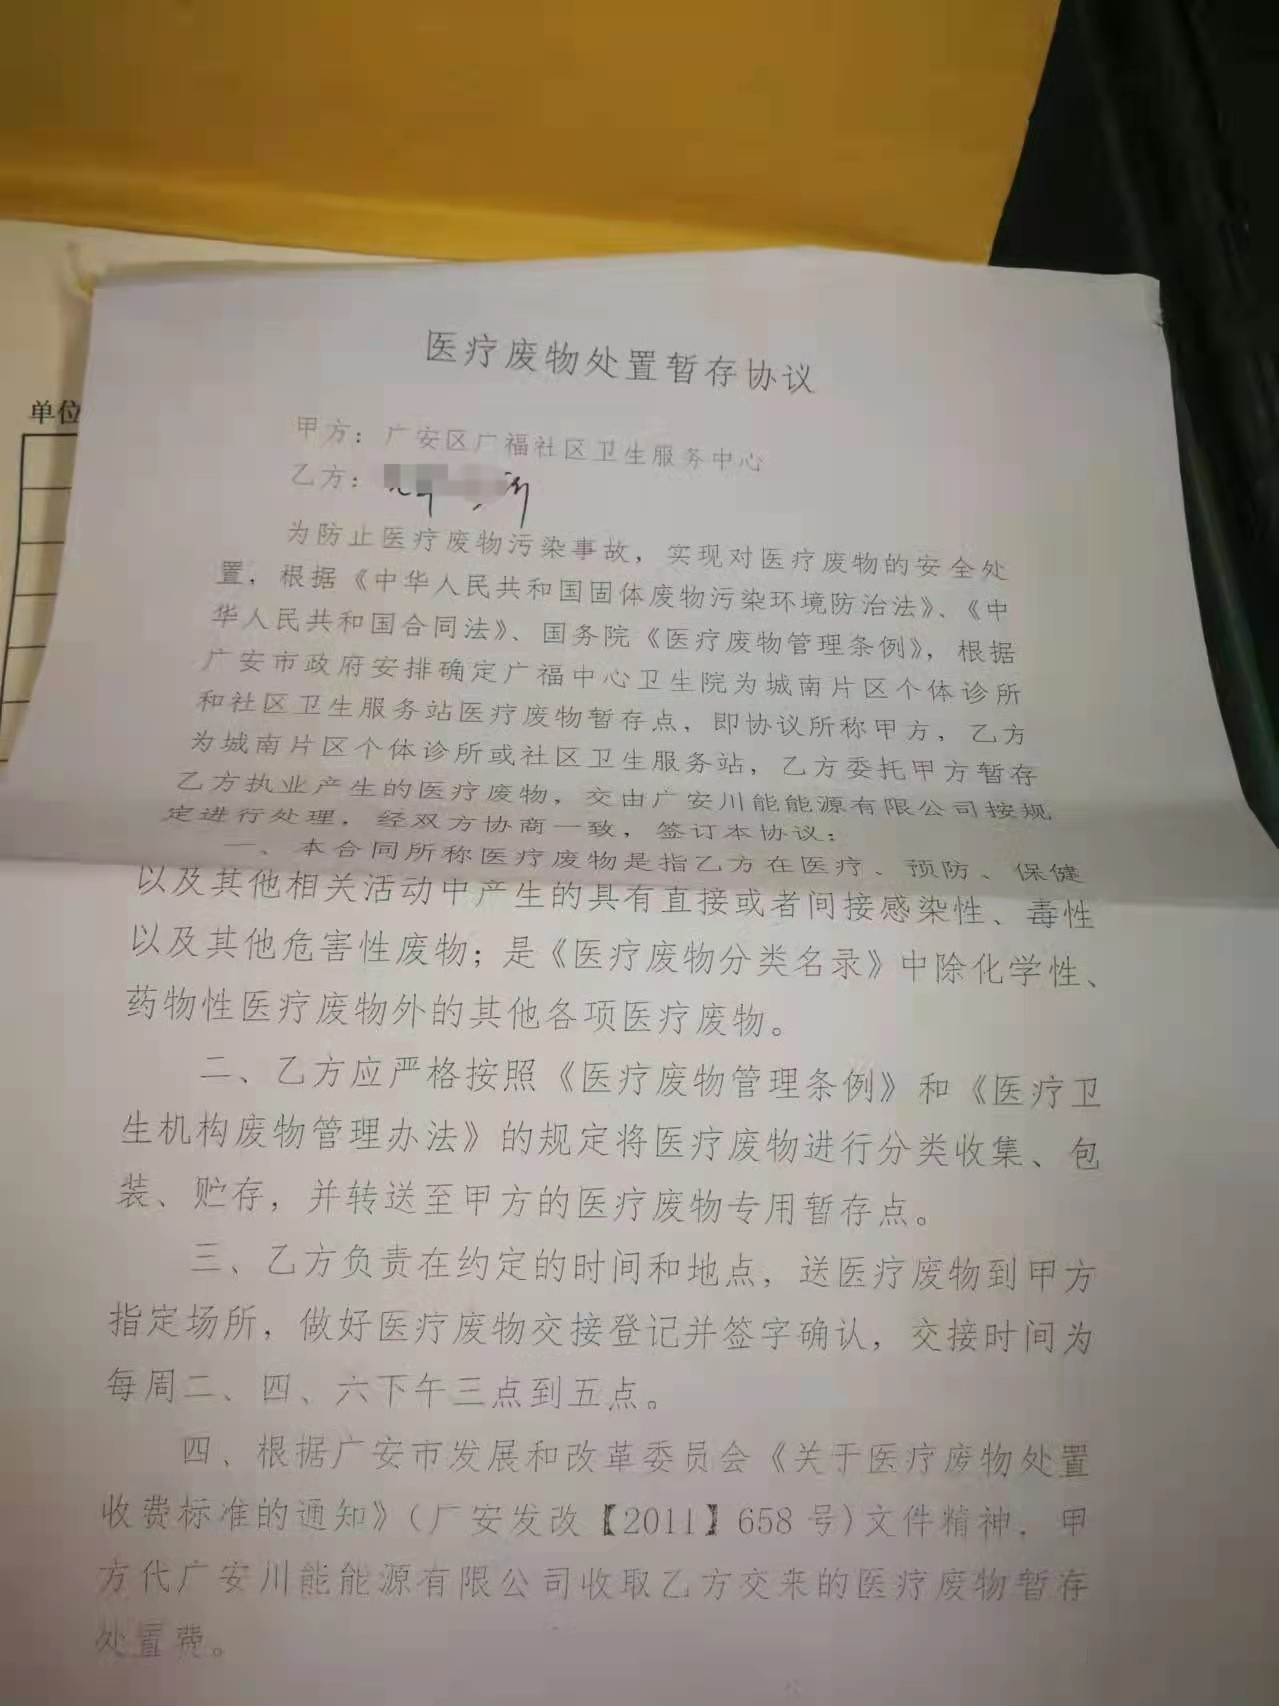 医疗废物处置暂存协议
单位
甲方：广安区广福社区卫生服务中心
乙方：
为防止医疗废物污染事故，实现对医疗废物的安全处
置，根据《中华人民共和国固体废物污染环境防治法》、《中
华人民共和国合同法》、国务院《医疗废物管理条例》，根据
广安市政府安排确定广福中心卫生院为城南片区个体诊所
和社区卫生服务站医疗废物暂存点，即协议所称甲方，乙方
为城南片区个体诊所或社区卫生服务站，乙方委托甲方暂存
乙方执业产生的医疗废物，交由广安川能能源有限公司按规
定进行处理，经双方协商一致，签订本协议：
一、本合同所称医疗废物是指乙方在医疗、预防、保健
以及其他相关活动中产生的具有直接或者间接感染性、毒性
以及其他危害性废物；是《医疗废物分类名录》中除化学性、
药物性医疗废物外的其他各项医疗废物。
二、乙方应严格按照《医疗废物管理条例》和《医疗卫
生机构废物管理办法》的规定将医疗废物进行分类收集、包
装、贮存，并转送至甲方的医疗废物专用暂存点。
三、乙方负责在约定的时间和地点，送医疗废物到甲方
指定场所，做好医疗废物交接登记并签字确认，交接时间为
每周二、四、六下午三点到五点。
四、根据广安市发展和改革委员会《关于医疗废物处置
收费标准的通知》（广安发改【2011】658号）文件精神，甲
方代广安川能能源有限公司收取乙方交来的医疗废物暂存
处置费。